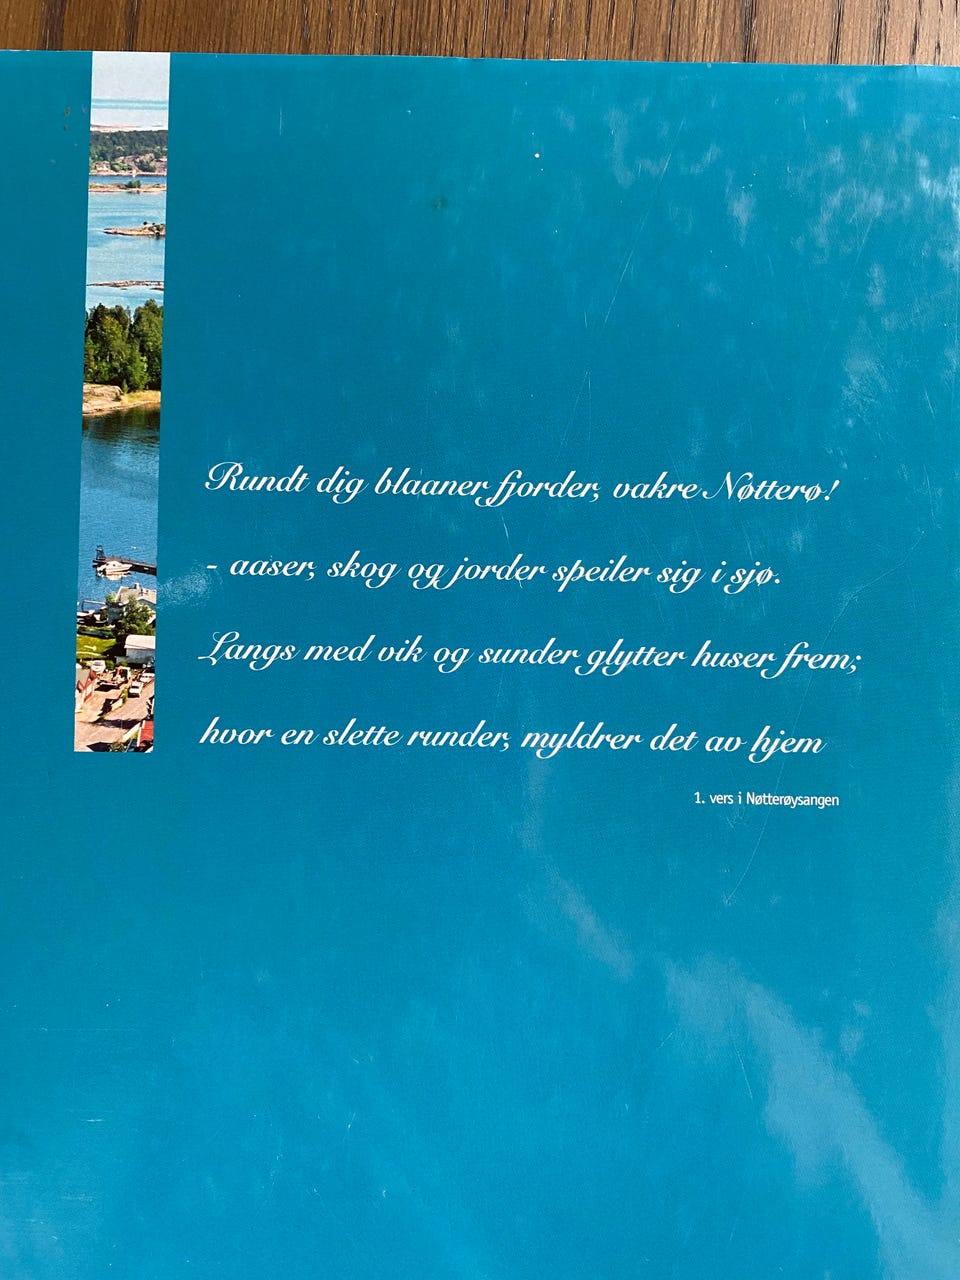 Rundt dig blaaner fjorder, vakre Nøtterø!
- aaser, skog og jorder speiler sig i sjø.
Langs med vik og sunder glytter huser frem;
hvor en slette runder, myldrer det av hjem
1. vers i Nøtterøysangen